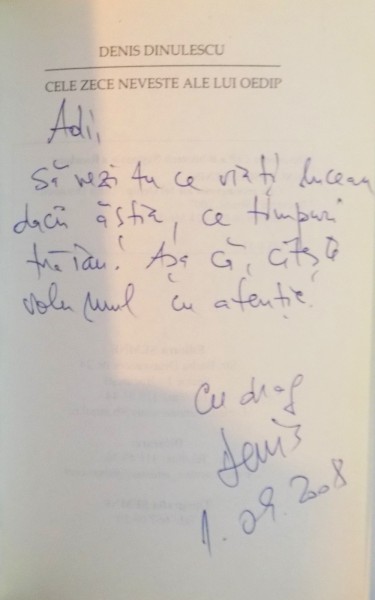 DENIS DINULESCU
CELE ZECE NEVESTE ALE LUI OEDIP
Adi,
Să vezi tu ce vieți duceau
dacii ăștia, ce timpuri
trăiau! Așa că, citește
volumul cu atenție!
Cu drag
Denis
1.09.2008